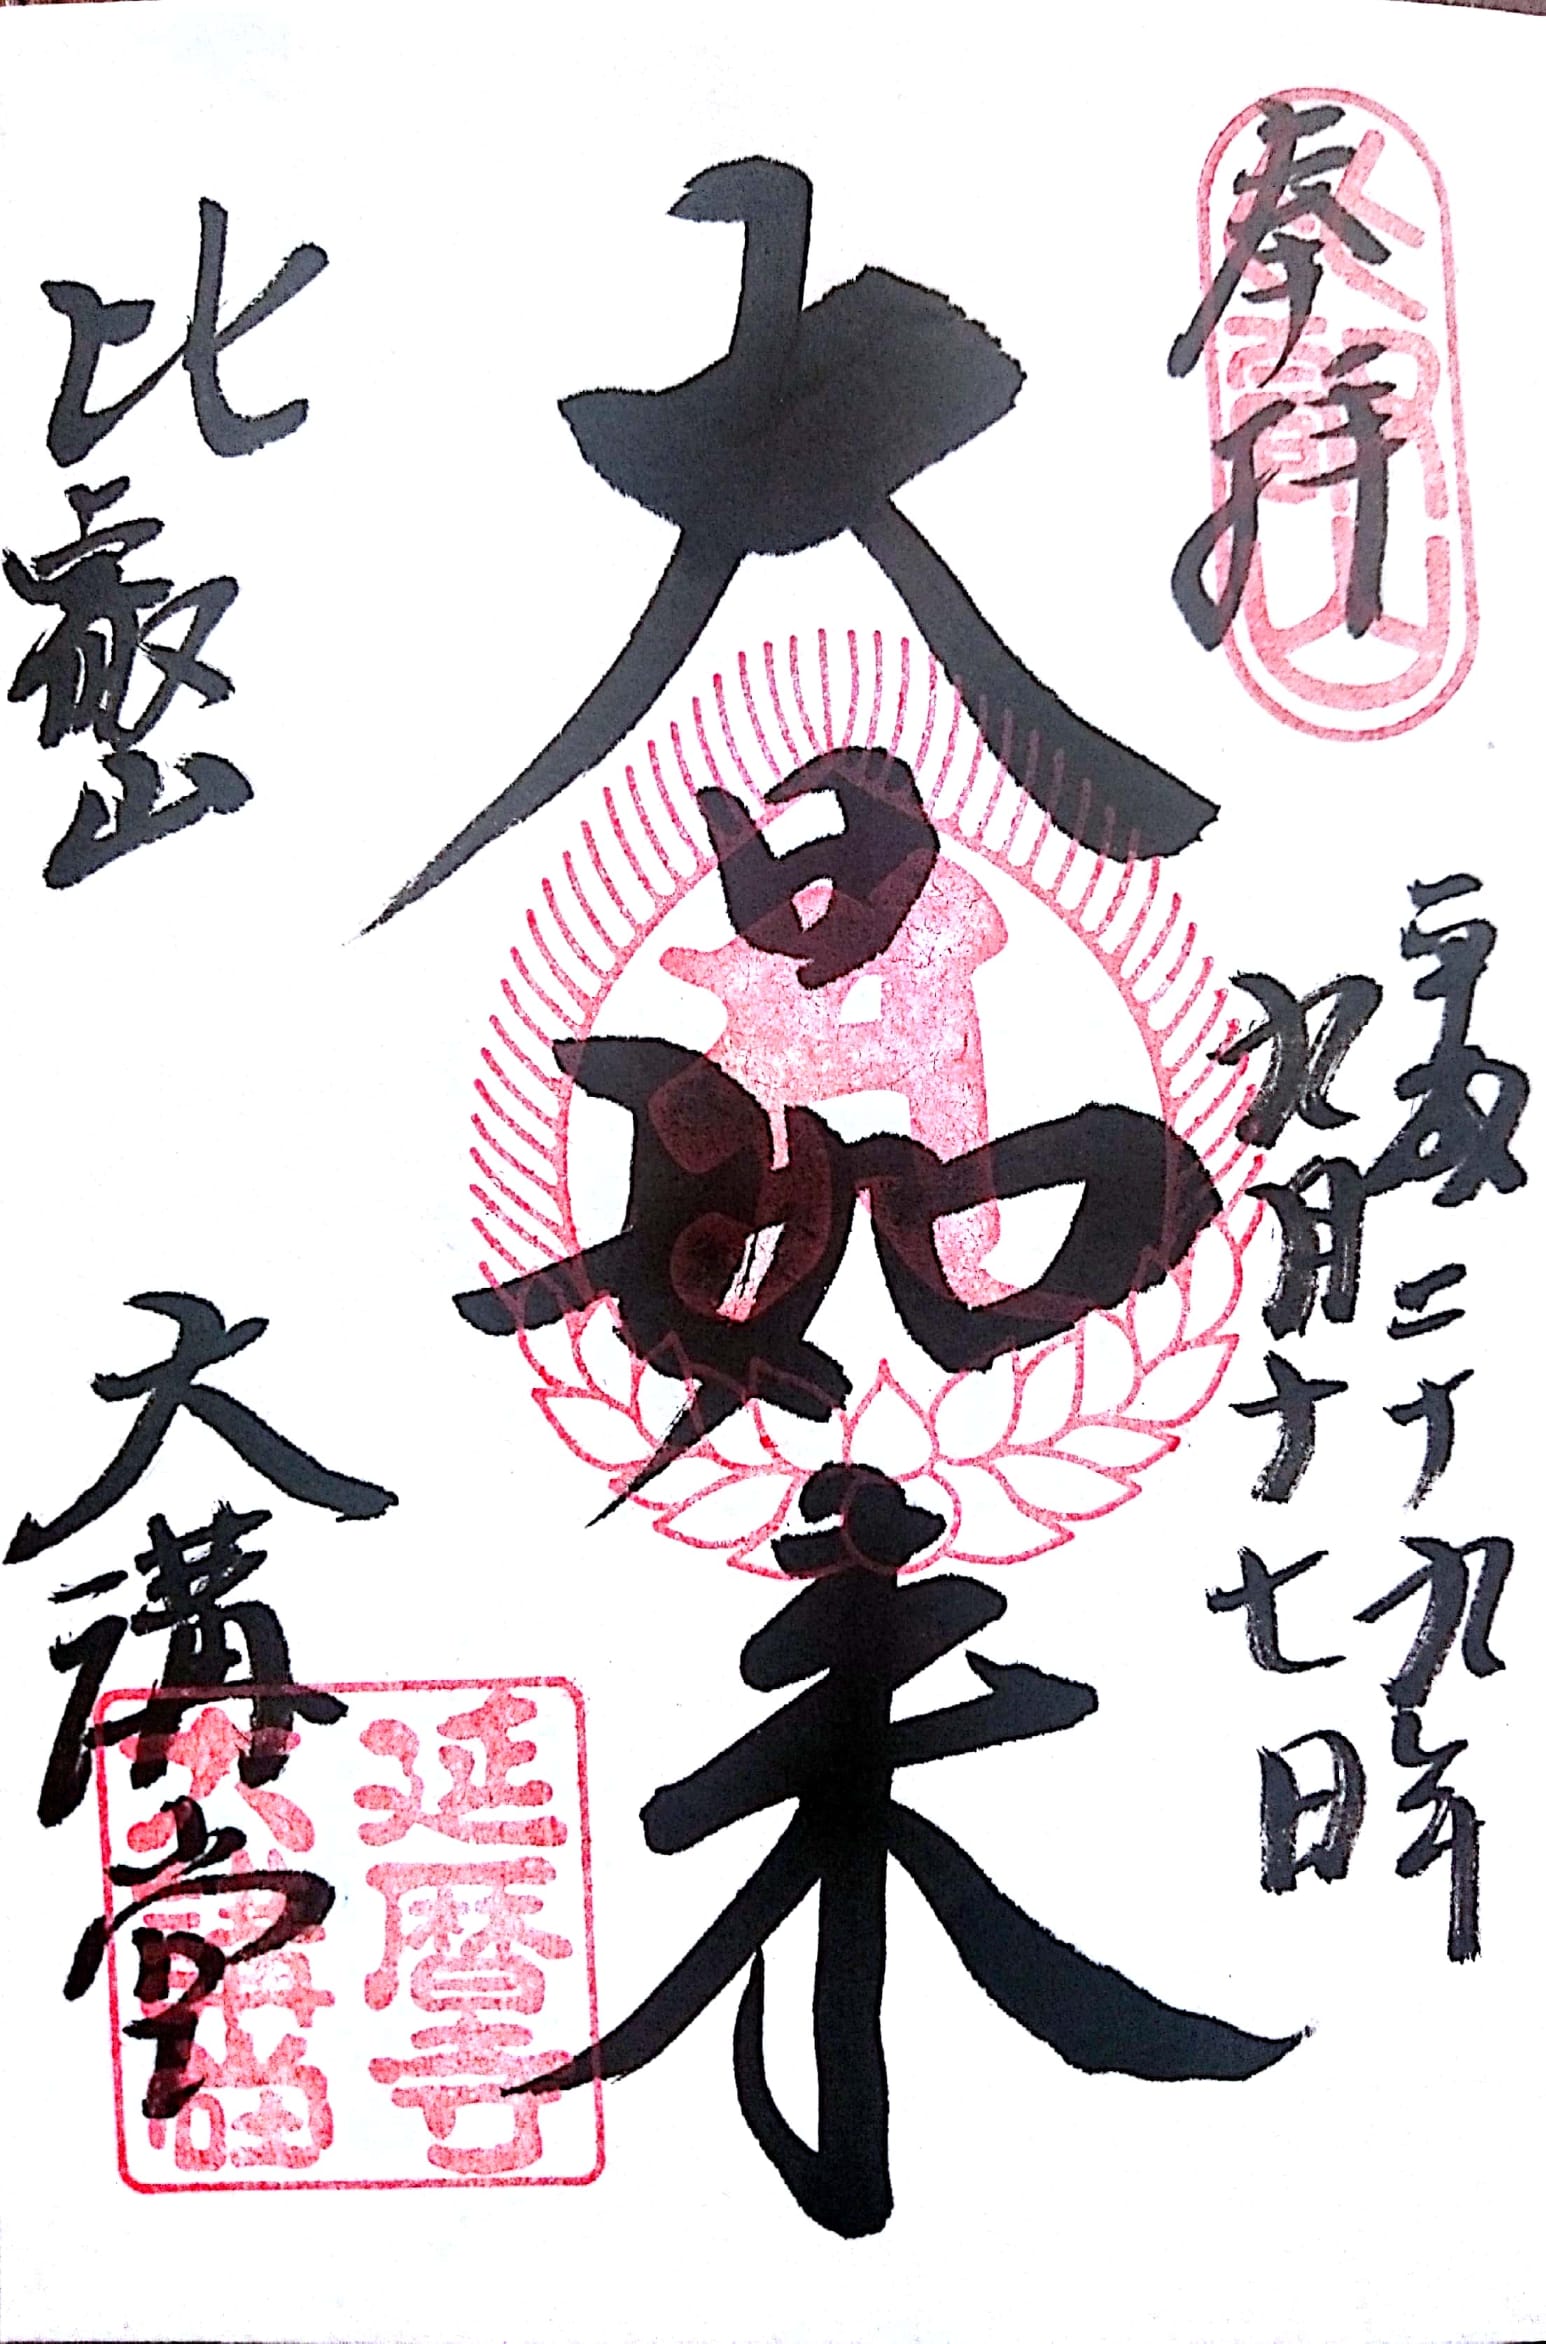 奉拝
比叡山
平成二十九年
九月十七日
大日如来
比叡山
大講堂
延暦寺
大講堂